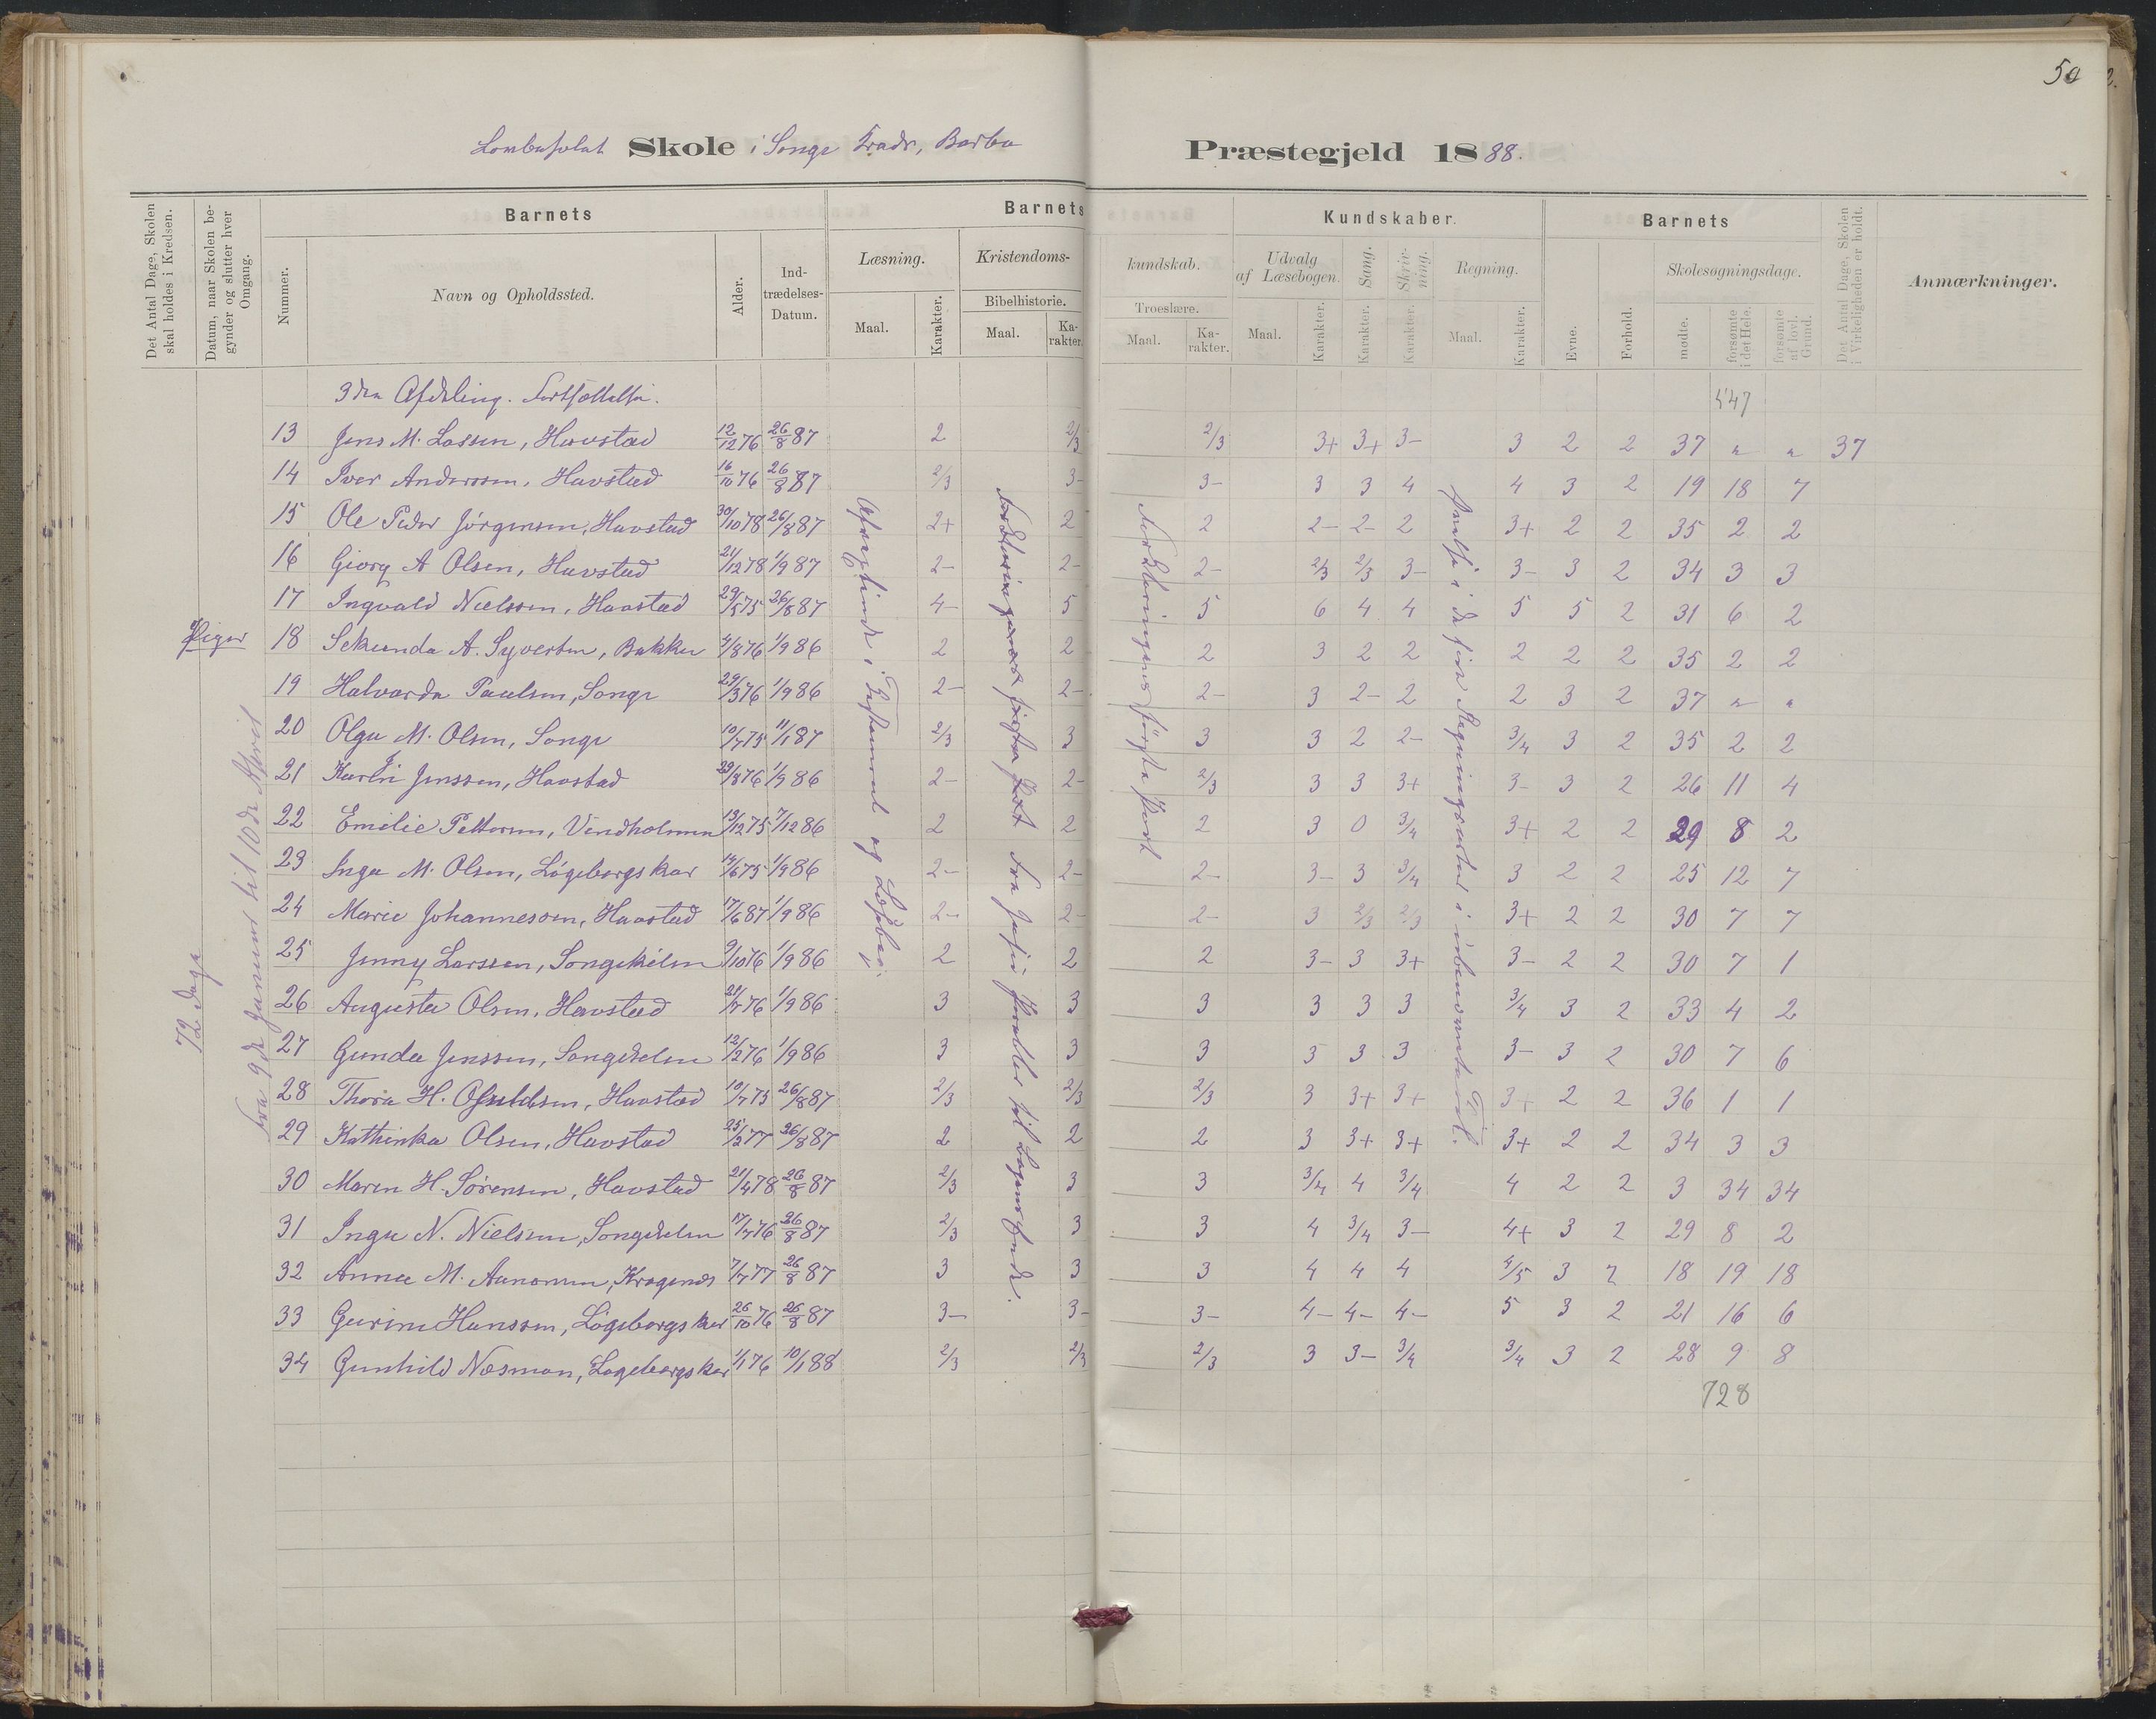 50
Skole i Songe Kreds, Barbo Præstegjeld 1888.
Det Antal Dage, Skolen skal holdes i Kredsen.
Datum, naar Skolen begynder og slutter hver Omgang.
Barnets
Nummer.
Navn og Opholdssted.
Alder.
Indtrædelses-Datum.
Barnets Kundskaber.
Læsning.
Maal. Karakter.
Kristendoms-kundskab.
Bibelhistorie.
Maal. Karakter.
Troeslære.
Maal. Karakter.
Udvalg af Læsebogen.
Maal. Karakter.
Sang. Karakter.
Skrivning. Karakter.
Regning.
Maal. Karakter.
Barnets
Evne.
Forhold.
Skolesøgningsdage.
mødte.
forsømte i det Hele.
forsømte af lovl. Grund.
Det Antal Dage, Skolen i Virkeligheden er holdt.
Anmærkninger.
3die Afdeling. Fortsættelse. 547
13 Jens M. Lassen, Havstad 12/12 76 26/8 87 2 2/3 2/3 3+ 3+ 3- 3 2 2 37 " " 37
14 Iver Anderssen, Havstad 16/10 76 26/8 87 2/3 3- 3- 3 3 4 4 3 2 19 18 7
15 Ole Peder Jörgensen, Havstad 30/10 78 26/8 87 2+ 2 2 2- 2- 2 3+ 2 2 35 2 2
16 Georg A Olsen, Havstad 21/12 78 1/9 87 2- 2- 2- 2/3 2/3 3- 3- 3 2 34 3 3
17 Ingvald Nielssen, Havstad 29/5 75 26/8 87 4- 5 5 6 4 4 5 5 2 31 6 2
Piger 18 Sekunda A. Syvertsen, Bakken 4/8 76 1/9 86 2 2 2 3 2 2 2 2 2 35 2 2
19 Halvarda Paulsen, Songe 29/3 76 1/9 86 2- 2- 2- 3 2- 2 2 3 2 37 " "
20 Olga M. Olsen, Songe 10/7 75 11/1 87 2/3 3 3 3 2 2- 3/4 3 2 35 2 2
21 Karen J. Jenssen, Havstad 29/8 76 1/9 86 2- 2- 2/3 3 3 3+ 3- 3 2 26 11 4
22 Emilie Pettersen, Vindholmen 13/12 75 7/12 86 2 2 2 3 0 3/4 3+ 2 2 29 8 2
23 Inga M. Olsen, Lögeborgskar 14/6 75 1/9 86 2- 2- 2- 3- 3 3/4 3 2 2 25 12 7
24 Marie Johannesen, Havstad 17/6 87 1/9 86 2- 2- 2- 3 2/3 2/3 3+ 2 2 30 7 7
25 Jenny Larssen, Songekilen 9/10 76 1/9 86 2 2 2 3- 3 3+ 3- 2 2 30 7 1
26 Augusta Olsen, Havstad 21/7 76 1/9 86 3 3 3 3 3 3 3/4 3 2 33 4 2
27 Gunda Jenssen, Songekilen 12/2 76 1/9 86 3 3 3 3 3 3 3- 3 2 30 7 6
28 Thora H. Osuldsen, Havstad 10/7 75 26/8 87 2/3 2/3 2/3 3 3+ 3+ 3+ 2 2 36 1 1
29 Kathinka Olsen, Havstad 25/2 77 26/8 87 2 2 2 3 3+ 3+ 3+ 2 2 34 3 3
30 Maren H. Sörensen, Havstad 21/4 78 26/8 87 2/3 3 3 3/4 4 3/4 4 2 2 3 34 34
31 Inga N. Nielssen, Songekilen 17/7 76 26/8 87 2/3 3 3 4 3/4 3- 4+ 3 2 29 8 2
32 Anna M. Aanonsen, Kragenæs 7/7 77 26/8 87 3 3 3 4 4 4 4/5 3 2 18 19 18
33 Gurine Hanssen, Lögeborgskar 26/10 76 26/8 87 3- 3- 3- 4- 4- 4- 5 3 2 21 16 6
34 Gunhild Næsman, Lögeborgskar 1/1 76 10/1 88 2/3 2/3 2/3 3 3- 3/4 3/4 3 2 28 9 8
728
72 Dage
Fra 9de Januar til 10de April
Afvexlende i Testament og Læsebog.
Forklaringens første Part
Øvelse i de fire Regningsarter i ubenævnte Tal.